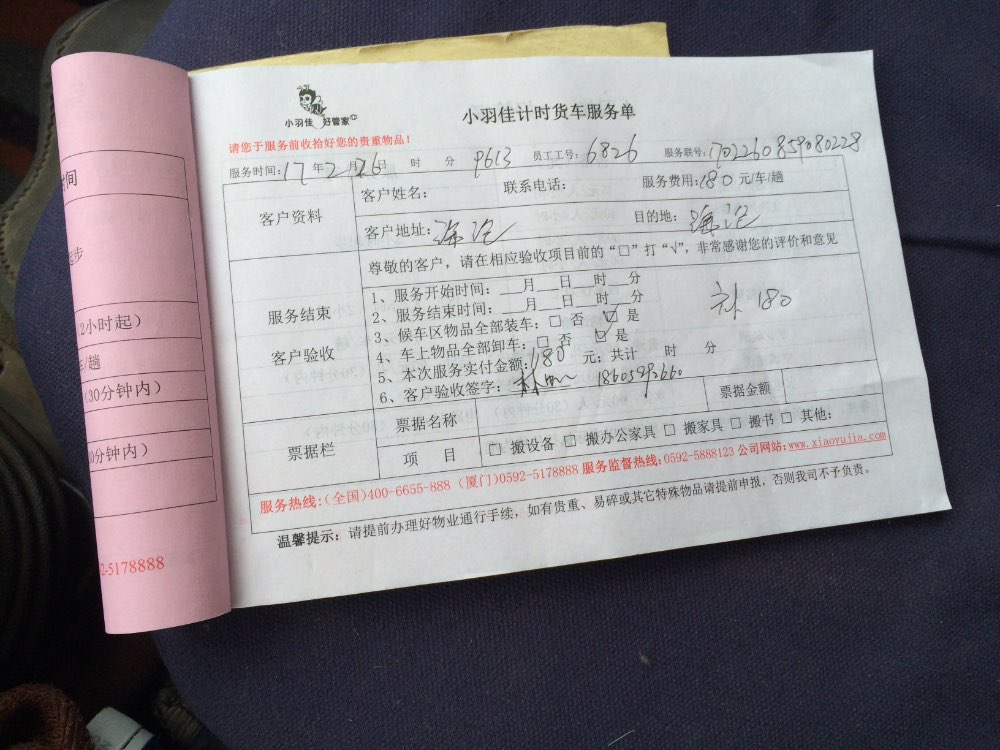 小羽佳 好管家
小羽佳计时货车服务单
请您于服务前收拾好您的贵重物品！
服务时间：17年2月26日 时 分 9613 员工工号：6826 服务联号：1702260859080228
客户资料
客户姓名： 联系电话： 服务费用：180元/车/趟
客户地址：海沧 目的地：海沧
服务结束
客户验收
尊敬的客户，请在相应验收项目前的“□”打“√”，非常感谢您的评价和意见
1、服务开始时间：___月___日___时___分
2、服务结束时间：___月___日___时___分
补180
3、候车区物品全部装车：□ 否 ☑ 是
4、车上物品全部卸车：□ 否 ☑ 是
5、本次服务实付金额：180 元；共计 时 分
6、客户验收签字：林
票据栏
票据名称 票据金额
项 目 □ 搬设备 □ 搬办公家具 □ 搬家具 □ 搬书 □ 其他：
服务热线：（全国）400-6655-888（厦门）0592-5178888 服务监督热线：0592-5888123 公司网站：www.xiaoyujia.com
温馨提示：请提前办理好物业通行手续，如有贵重、易碎或其它特殊物品请提前申报，否则我司不予负责。
时间
步
2小时起）
车/趟
（30分钟内）
0分钟内）
2-5178888